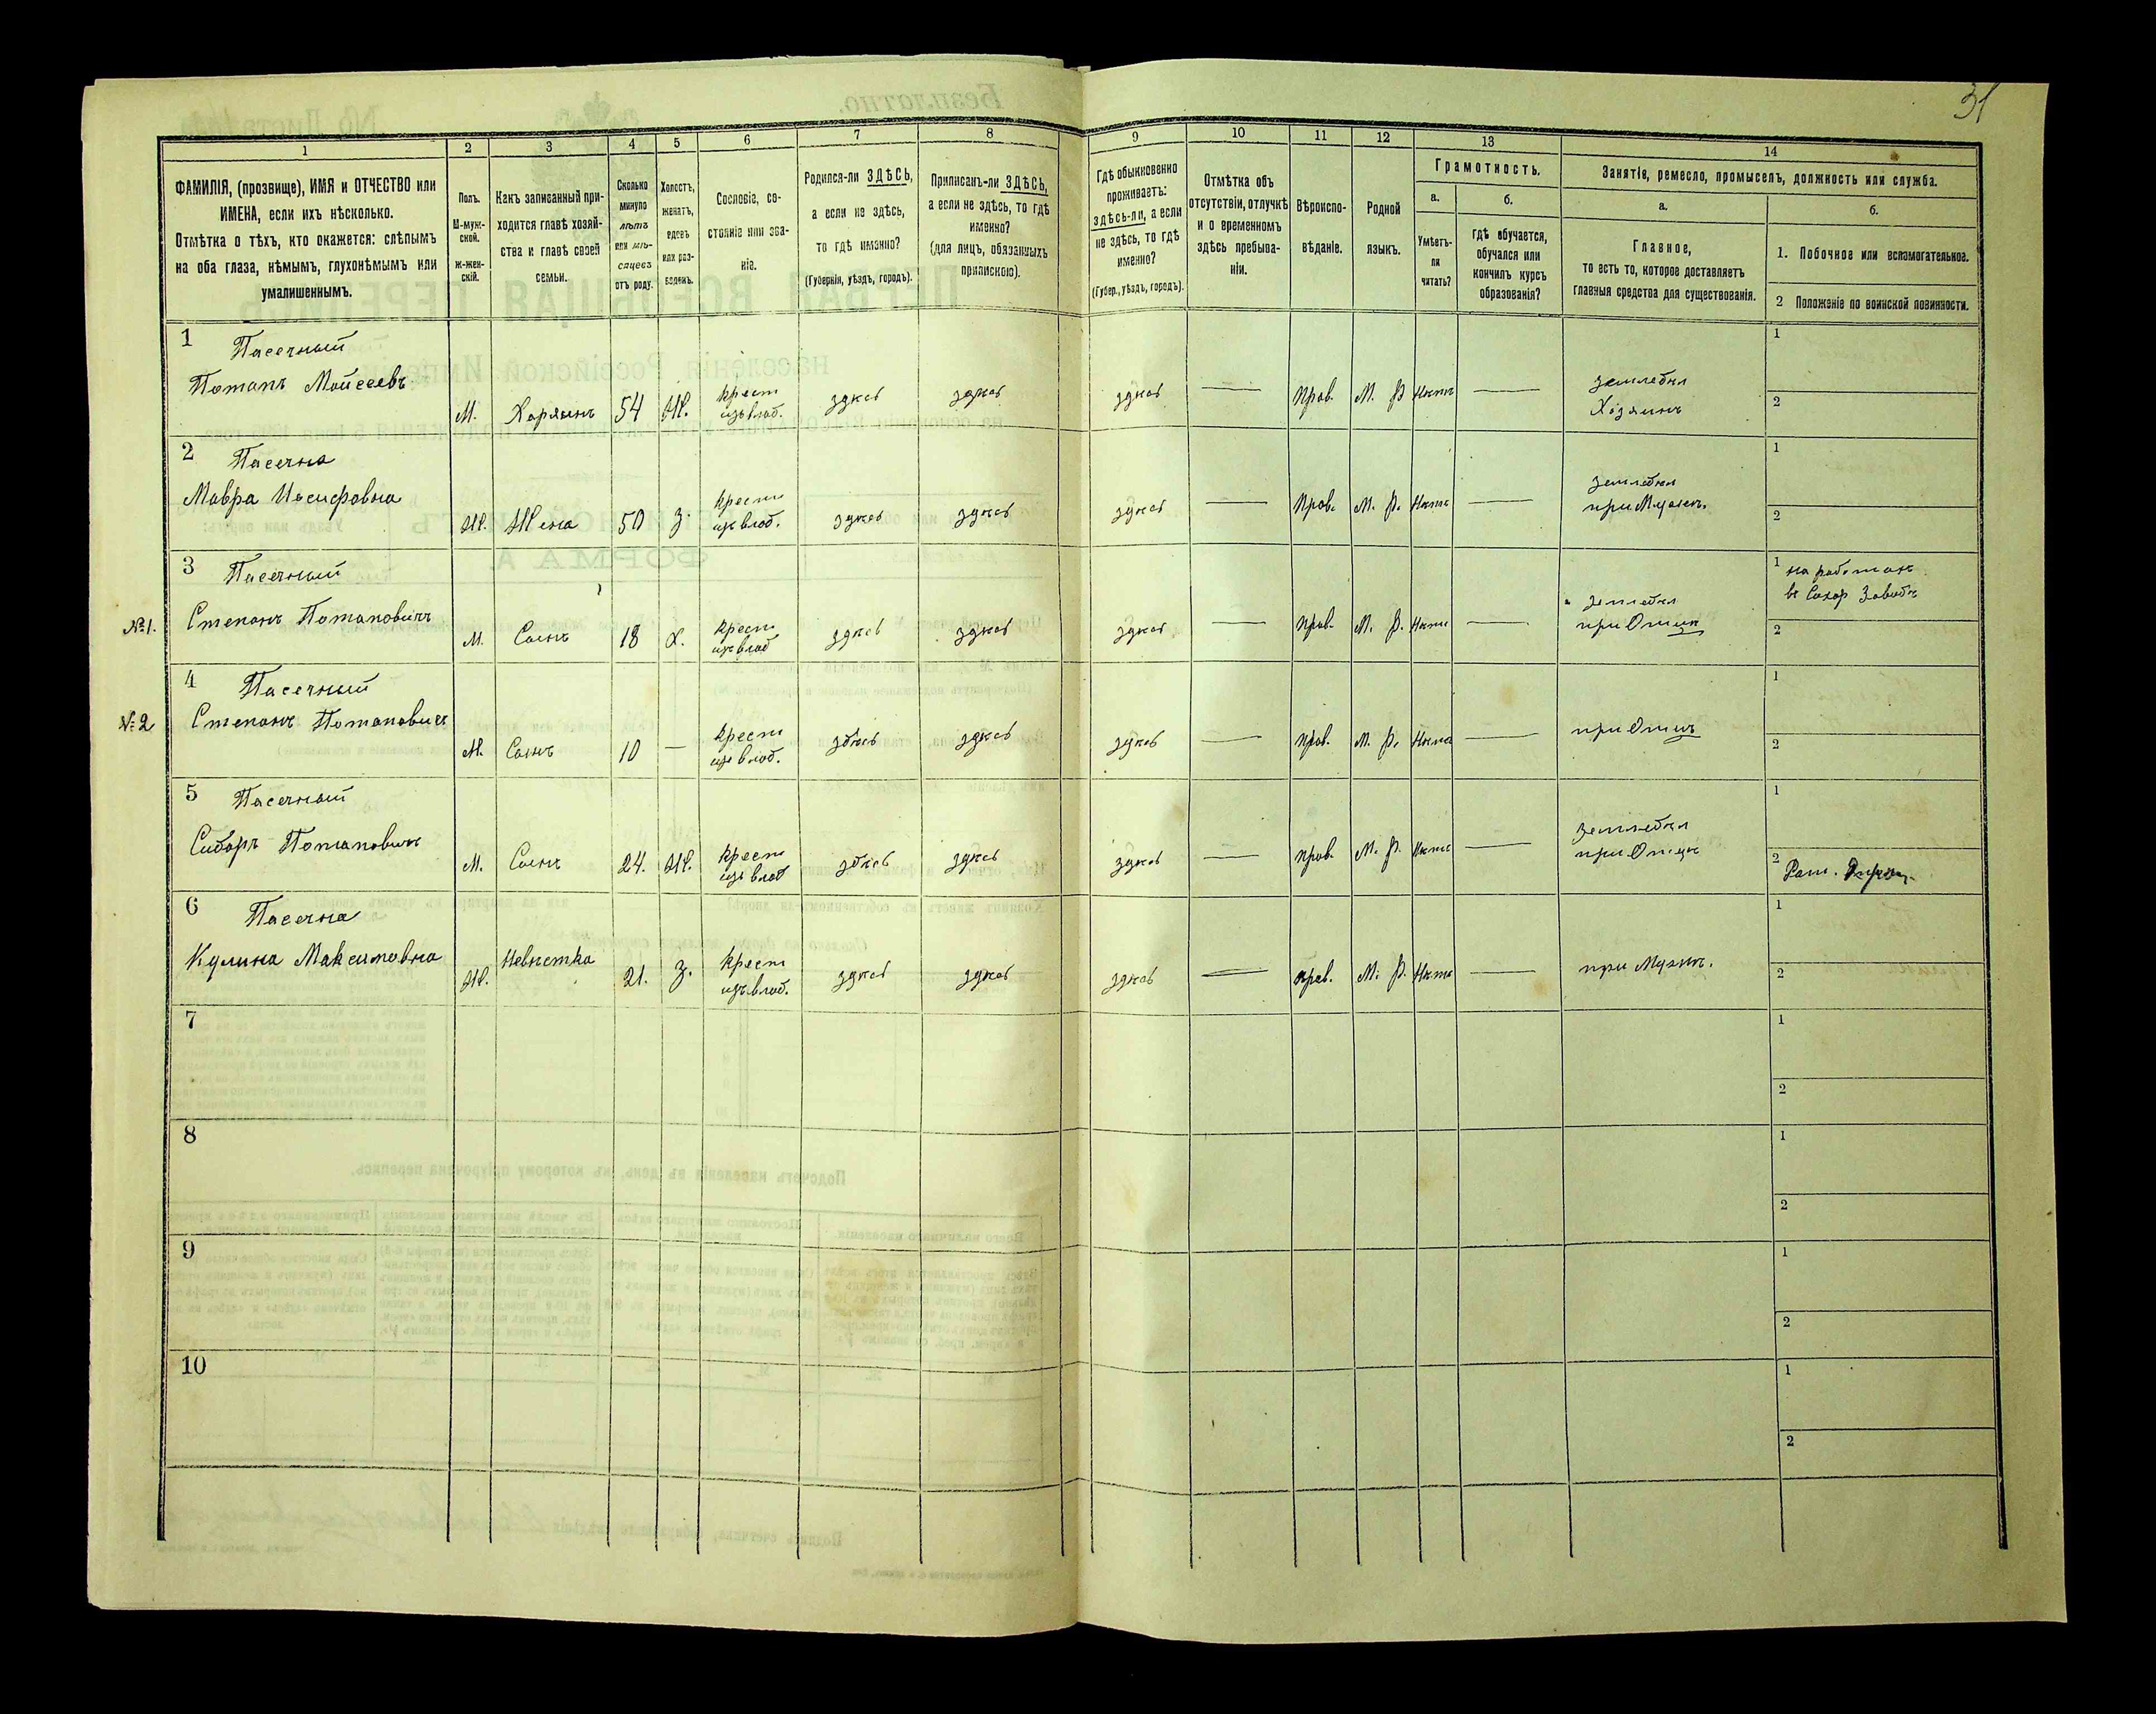 31
1
2
3
4
5
6
7
8
9
10
11
12
13
14
ФАМИЛІЯ, (прозвище), ИМЯ и ОТЧЕСТВО или
ИМЕНА, если ихъ нѣсколько.
Отмѣтка о тѣхъ, кто окажется: слѣпымъ
на оба глаза, нѣмымъ, глухонѣмымъ или
умалишеннымъ.
Полъ.
М-муж-
ской.
ж-жен-
скій.
Какъ записанный при-
ходится главѣ хозяй-
ства и главѣ своей
семьи.
Сколько
минуло
лѣтъ
или мѣ-
сяцевъ
отъ роду.
Холостъ,
женатъ,
вдовъ
или раз-
веденъ.
Сословіе, со-
стояніе или зва-
ніе.
Родился-ли ЗДѢСЬ,
а если не здѣсь,
то гдѣ именно?
(Губернія, уѣздъ, городъ).
Приписанъ-ли ЗДѢСЬ,
а если не здѣсь, то гдѣ
именно?
(для лицъ, обязанныхъ
припискою).
Гдѣ обыкновенно
проживаетъ:
здѣсь-ли, а если
не здѣсь, то гдѣ
именно?
(Губер., уѣздъ, городъ).
Отмѣтка объ
отсутствіи, отлучкѣ
и о временномъ
здѣсь пребыва-
ніи.
Вѣроиспо-
вѣданіе.
Родной
языкъ.
Грамотность.
а.
б.
Умѣетъ-
ли
читать?
гдѣ обучается,
обучался или
кончилъ курсъ
образованія?
Занятіе, ремесло, промыселъ, должность или служба.
а.
б.
Главное,
то есть то, которое доставляетъ
главныя средства для существованія.
1. Побочное или вспомогательное.
2 Положеніе по воинской повинности.
1 Пасечный
Потапъ Мойсеевъ
М. Хозяинъ 54 Ж. крест
изъ влад. здѣсь здѣсь здѣсь — прав. М. Р. Нѣтъ — земледѣл
Хозяинъ
1
2
2 Пасечна
Мавра Иосифовна
Ж. Жена 50 З. крест
изъ влад. здѣсь здѣсь здѣсь — прав. М. Р. Нѣтъ — земледѣл
при Мужѣ.
1
2
3 Пасечный
№1. Степанъ Потаповичъ
М. Сынъ 18 Х. крест
изъ влад здѣсь здѣсь здѣсь — прав. М. Р. Нѣтъ — земледѣл
при Отцѣ
1 на работахъ
въ Сахар Заводѣ
2
4 Пасечный
№2 Степанъ Потаповичъ
М. Сынъ 10 — крест
изъ влад. здѣсь здѣсь здѣсь — прав. М. Р. Нѣтъ — при Отцѣ
1
2
5 Пасечный
Сидоръ Потаповичъ
М. Сынъ 24. Ж. крест
изъ влад здѣсь здѣсь здѣсь — прав. М. Р. Нѣтъ — земледѣл
при Отцѣ
1
2 Рат.
6 Пасечна
Кулина Максимовна
Ж. Невѣстка 21. З. крест
изъ влад. здѣсь здѣсь здѣсь — прав. М. Р. Нѣтъ — при Мужѣ.
1
2
7
1
2
8
1
2
9
1
2
10
1
2